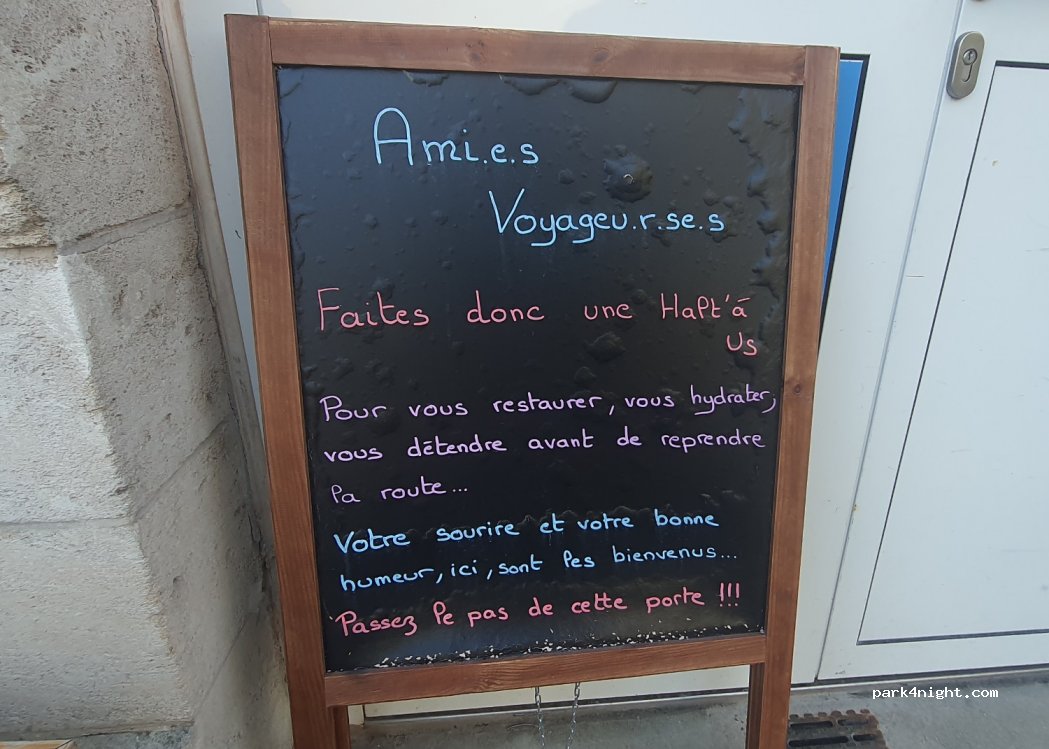 Ami.e.s
Voyageu.r.se.s
Faites donc une Halt'à
Us
Pour vous restaurer, vous hydrater,
vous détendre avant de reprendre
la route...
Votre sourire et votre bonne
humeur, ici, sont les bienvenus...
Passez le pas de cette porte !!!
park4night.com